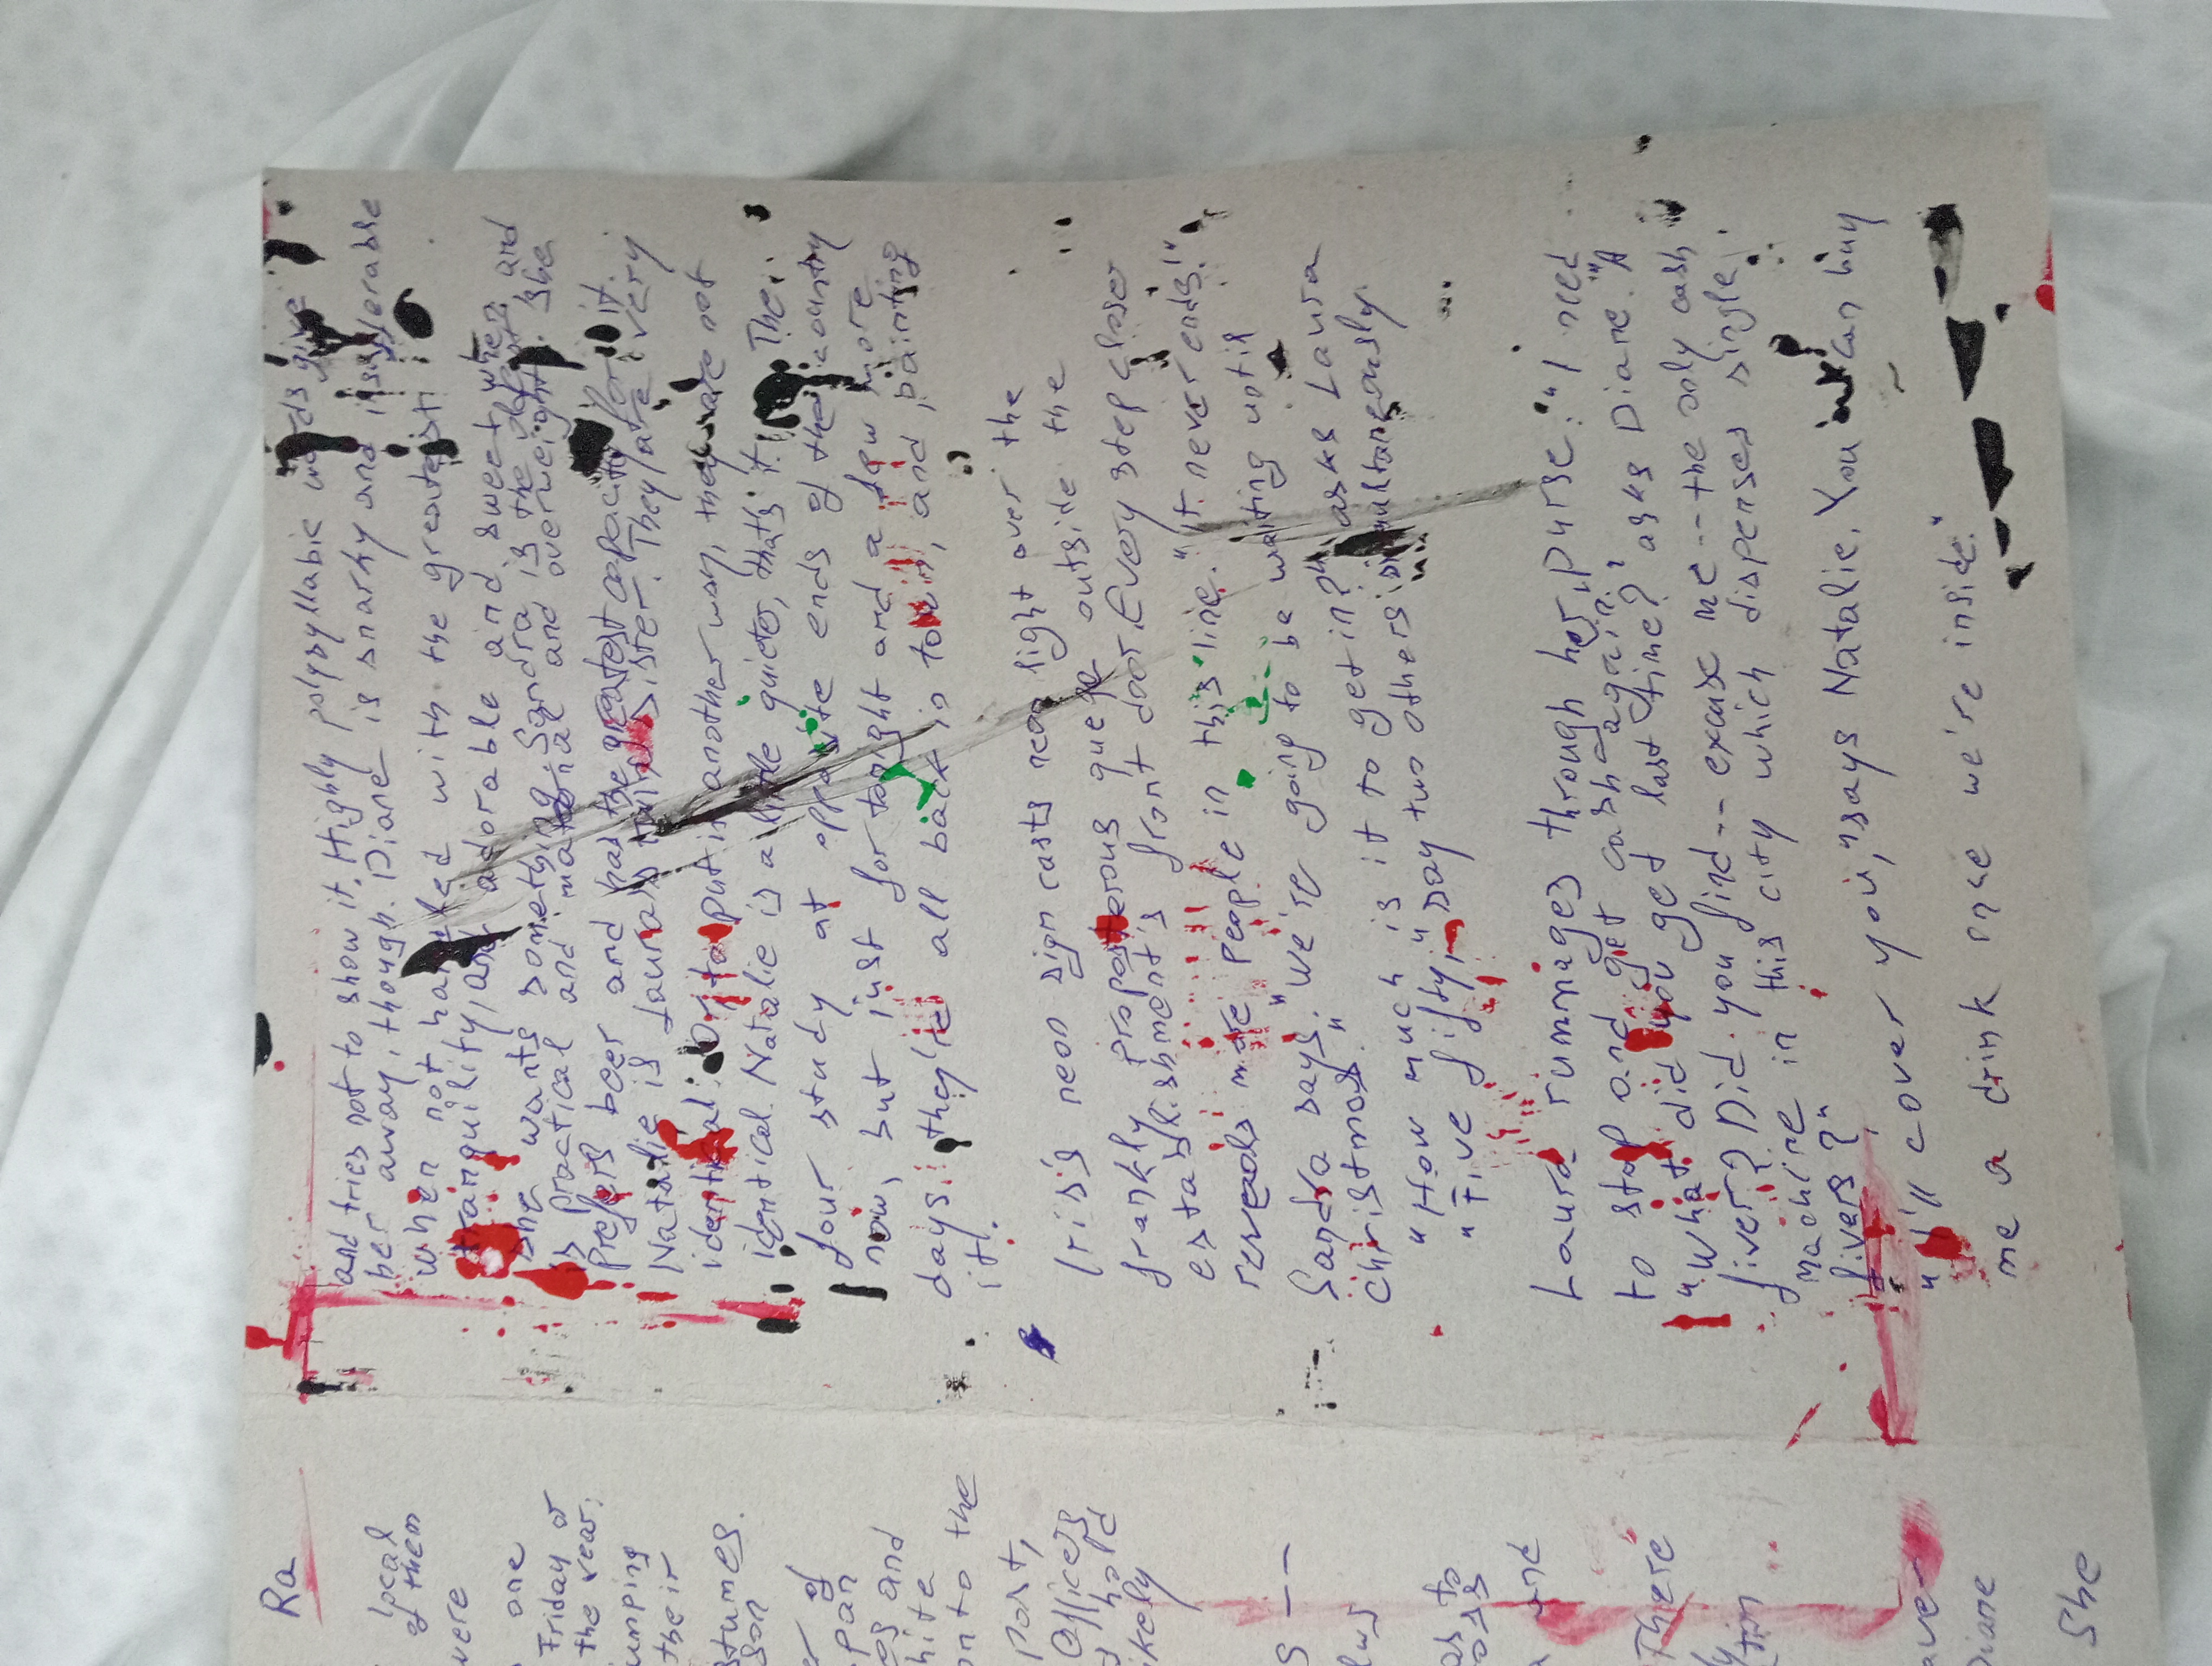 Ra
local
of them
were
one
Friday or
the year.
umping
their
stumes.
son
of
pan
and
hite
onto the
Post,
Officers
hold
ikely
There
Diane
She
and tries not to show it. Highly polysyllabic words give
her away, though. Diane is snarky and insufferable
when not handled with the greatest
tranquility, and adorable and sweet when
she wants something. Sandra is the oldest and
is practical and maternal and overweight. She
prefers beer and has the greatest capacity for it.
Natalie is Laura's twin sister. They are very
identical. Or to put it another way, they are not
identical. Natalie is a little quieter, that's it. The
four study at opposite ends of the country
now, but just for tonight and a few more
days they're all back in town, and painting
it.
Iris's neon sign casts neon light over the
frankly preposterous queue outside the
establishment's front door. Every step closer
reveals more people in this line. "It never ends!"
Sandra says. "We're going to be waiting until
Christmas."
"How much is it to get in?" asks Laura
"Five fifty," say two others simultaneously
Laura rummages through her purse. "I need
to stop and get cash again."
"What did you get last time?" asks Diane. "A
fiver? Did you find-- excuse me-- the only cash
machine in this city which dispenses single
fivers?"
"I'll cover you," says Natalie. You can buy
me a drink once we're inside."